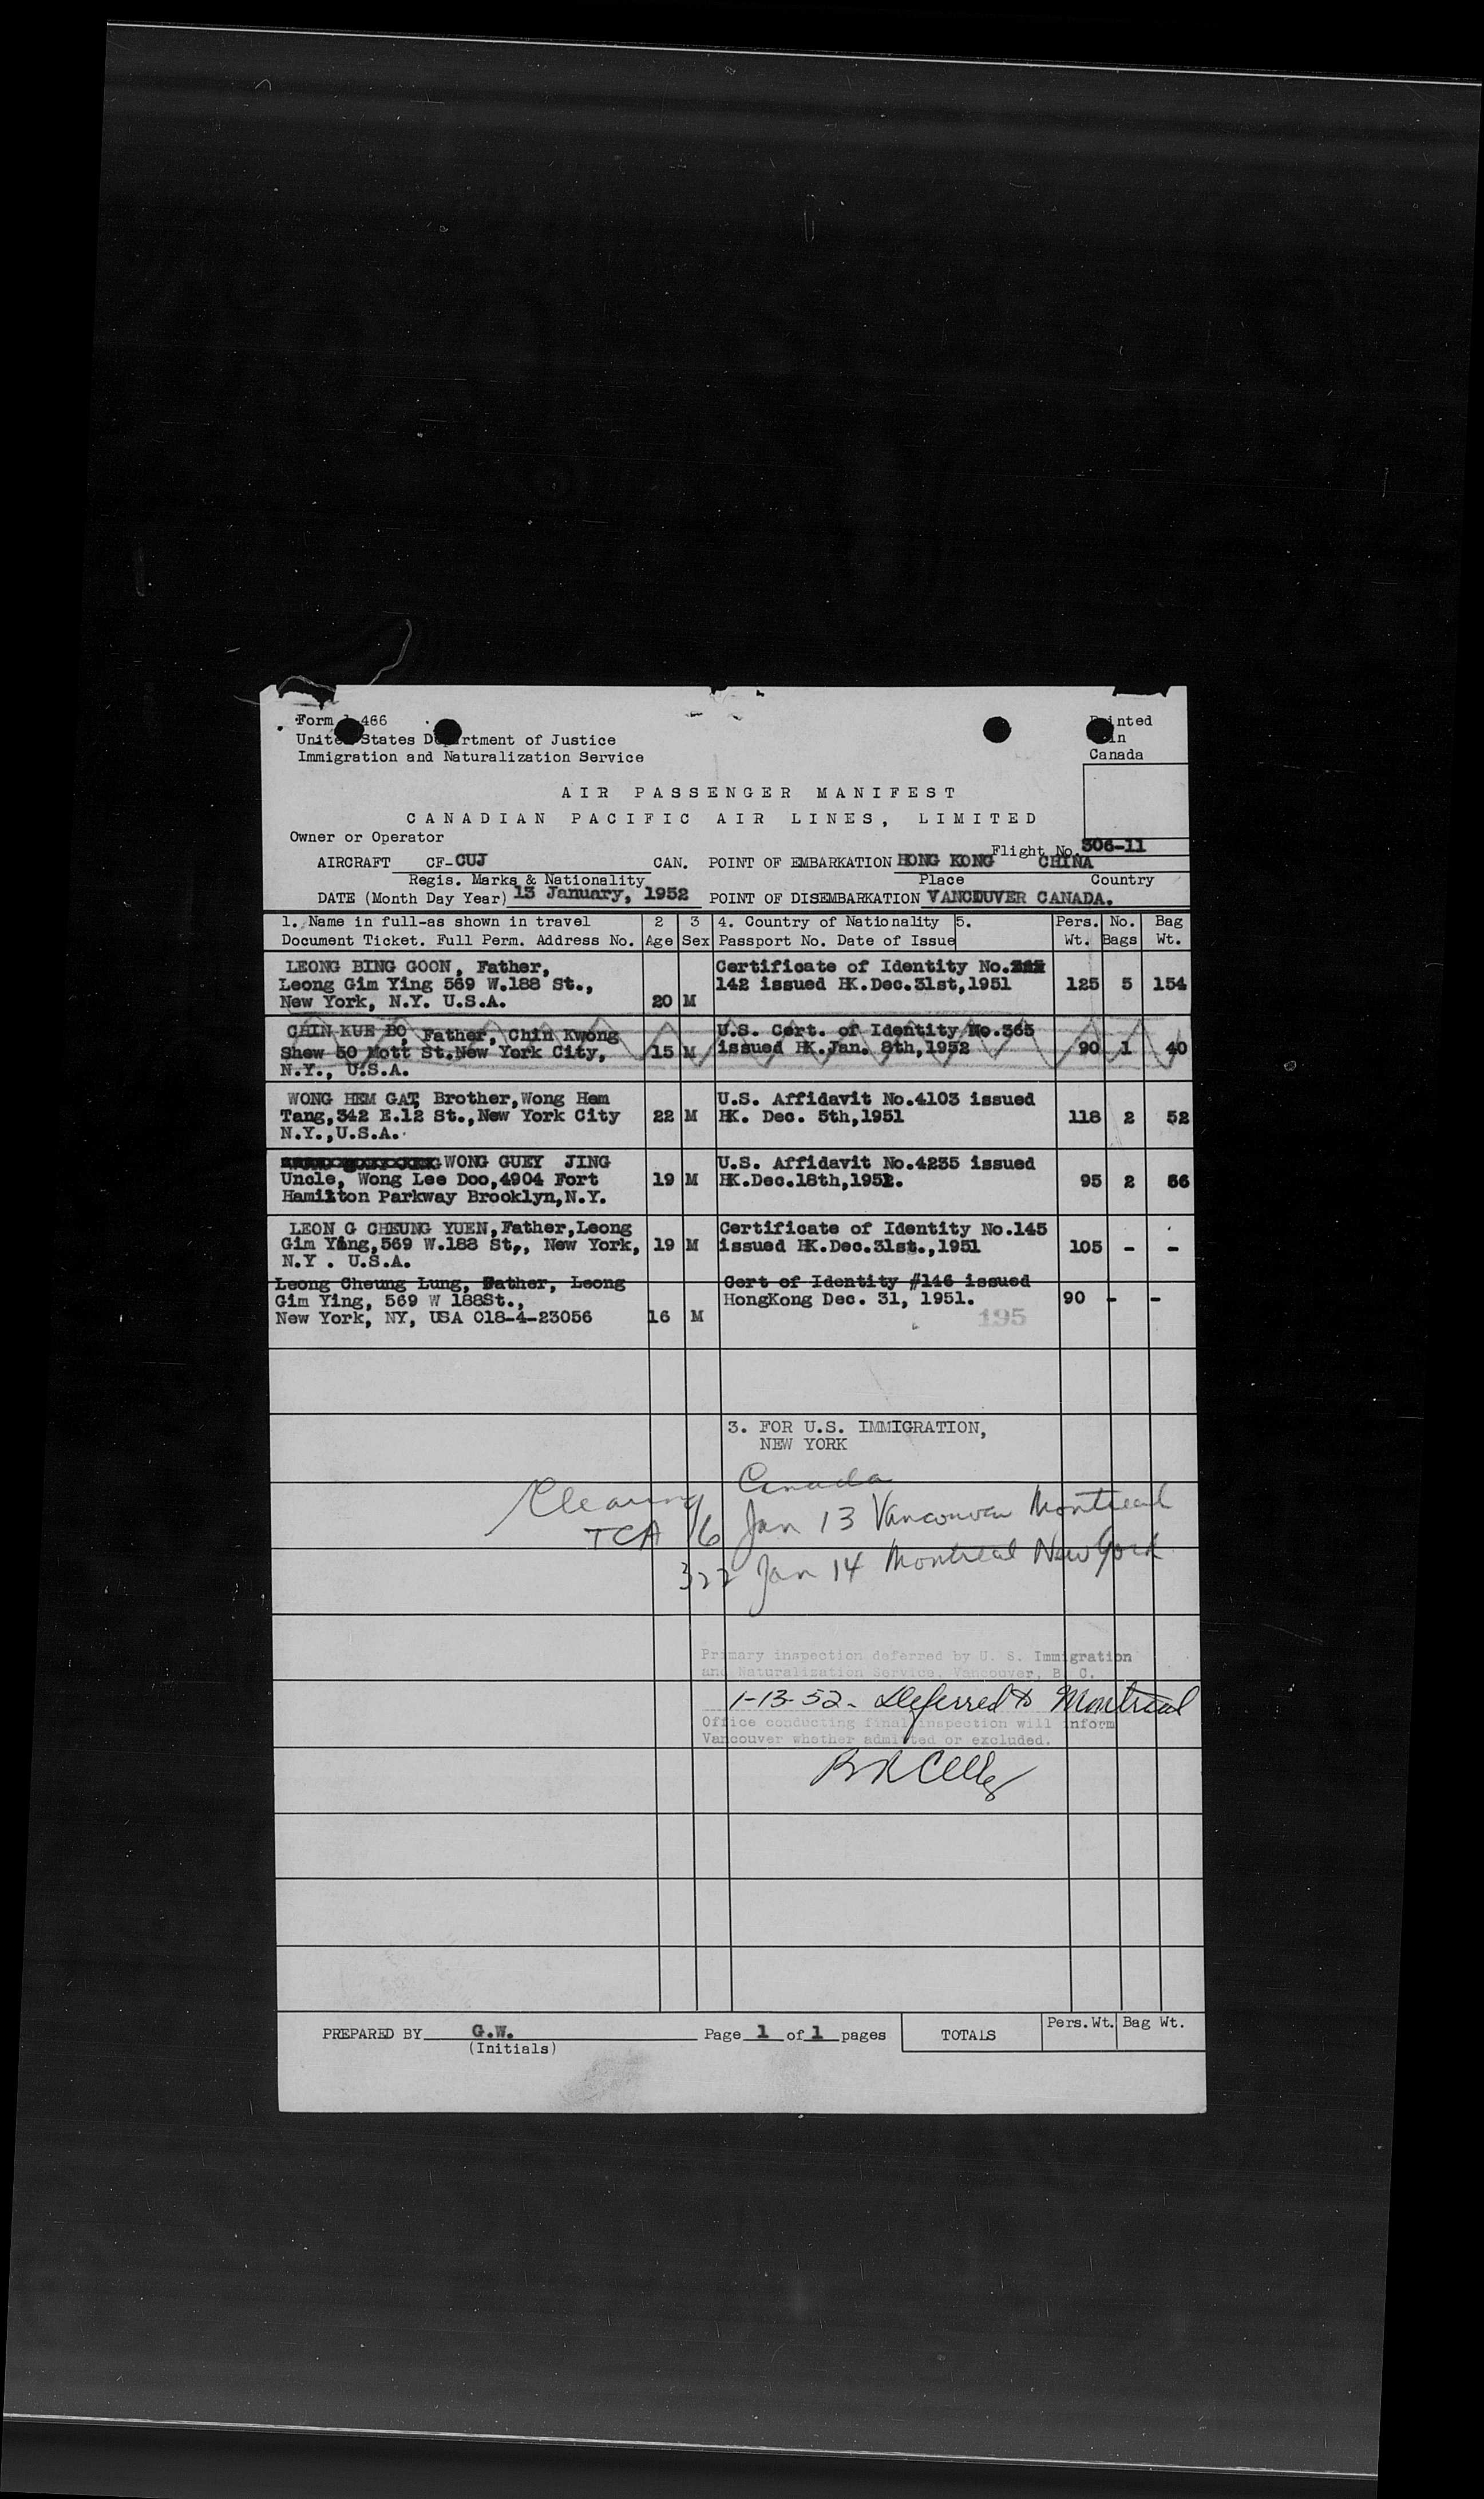 Form 466
United States Department of Justice
Immigration and Naturalization Service
Printed
in
Canada
AIR PASSENGER MANIFEST
CANADIAN PACIFIC AIR LINES, LIMITED
Owner or Operator
Flight No. 306-11
AIRCRAFT CF-CUJ CAN. POINT OF EMBARKATION HONG KONG CHINA
Regis. Marks & Nationality Place Country
DATE (Month Day Year) 13 January, 1952 POINT OF DISEMBARKATION VANCOUVER CANADA.
1. Name in full-as shown in travel 2 3 4. Country of Nationality 5. Pers. No. Bag
Document Ticket. Full Perm. Address No. Age Sex Passport No. Date of Issue Wt. Bags Wt.
LEONG BING GOON, Father, Certificate of Identity No.
Leong Gim Ying 569 W.188 St., 142 issued HK.Dec.31st,1951 125 5 154
New York, N.Y. U.S.A. 20 M
CHIN KUE BO, Father, Chin Kwong U.S. Cert. of Identity No.365
Shew 50 Mott St.New York City, 15 M issued HK.Jan. 8th,1952 90 1 40
N.Y., U.S.A.
WONG HEM GAT, Brother,Wong Hem U.S. Affidavit No.4103 issued
Tang,342 E.12 St.,New York City 22 M HK. Dec. 5th,1951 118 2 52
N.Y.,U.S.A.
WONG GUEY JING U.S. Affidavit No.4235 issued
Uncle, Wong Lee Doo,4904 Fort 19 M HK.Dec.18th,1951. 95 2 56
Hamilton Parkway Brooklyn,N.Y.
LEON G CHEUNG YUEN,Father,Leong Certificate of Identity No.145
Gim Ying,569 W.188 St,, New York, 19 M issued HK.Dec.31st.,1951 105 - -
N.Y . U.S.A.
Leong Cheung Lung, Father, Leong Cert of Identity #146 issued
Gim Ying, 569 W 188St., HongKong Dec. 31, 1951. 90 - -
New York, NY, USA 018-4-23056 16 M
195
3. FOR U.S. IMMIGRATION,
NEW YORK
Clearing Canada
TCA 16 Jan 13 Vancouver Montreal
322 Jan 14 Montreal New York
Primary inspection deferred by U. S. Immigration
and Naturalization Service, Vancouver, B. C.
1-13-52- Deferred to Montreal
Office conducting final inspection will inform
Vancouver whether admitted or excluded.
PREPARED BY G.W. Page 1 of 1 pages TOTALS Pers.Wt. Bag Wt.
(Initials)